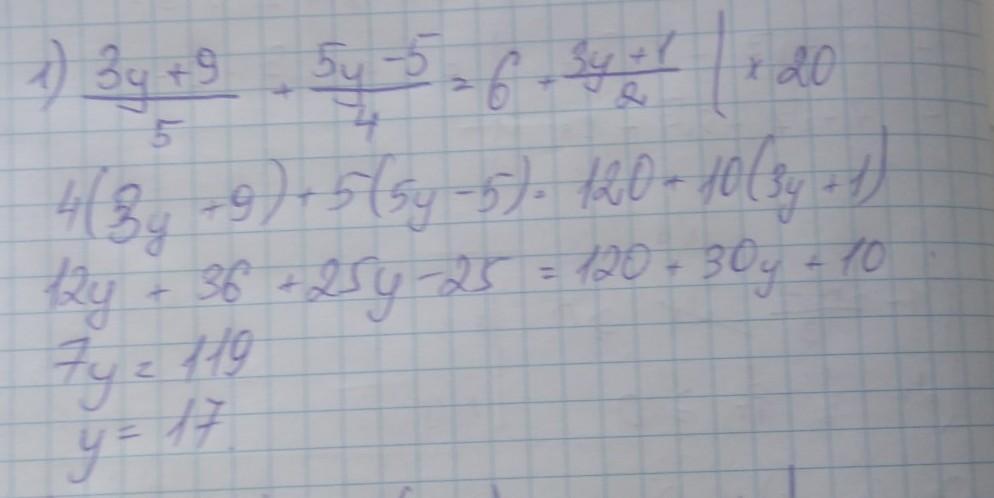 1) (3y+9)/5 + (5y-5)/4 = 6 + (3y+1)/2 | × 20
4(3y+9)+5(5y-5)=120+10(3y+1)
12y + 36 + 25y - 25 = 120 + 30y + 10
7y = 119
y = 17